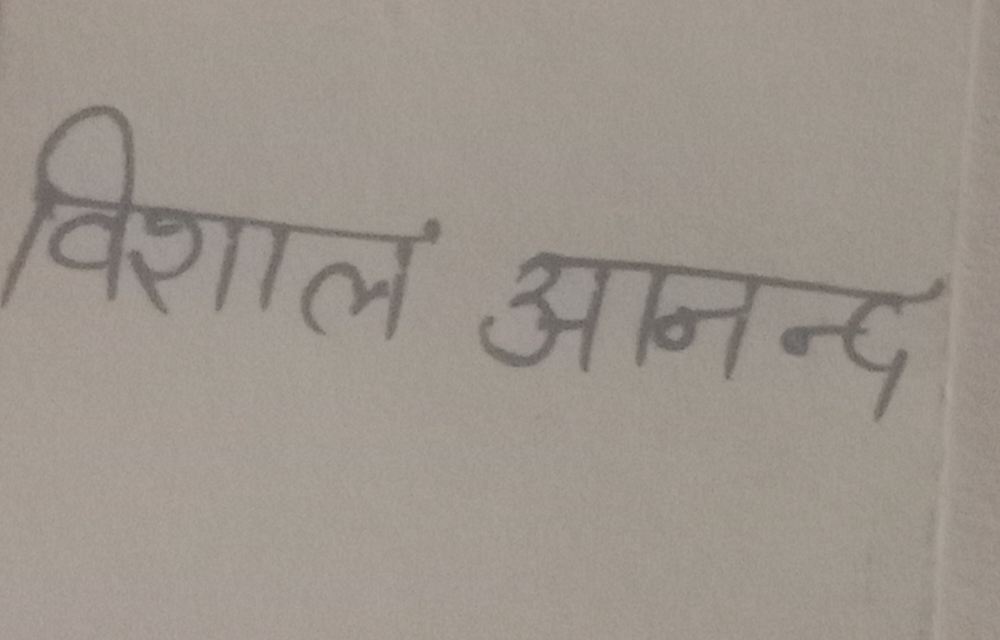 विशाल आनन्द